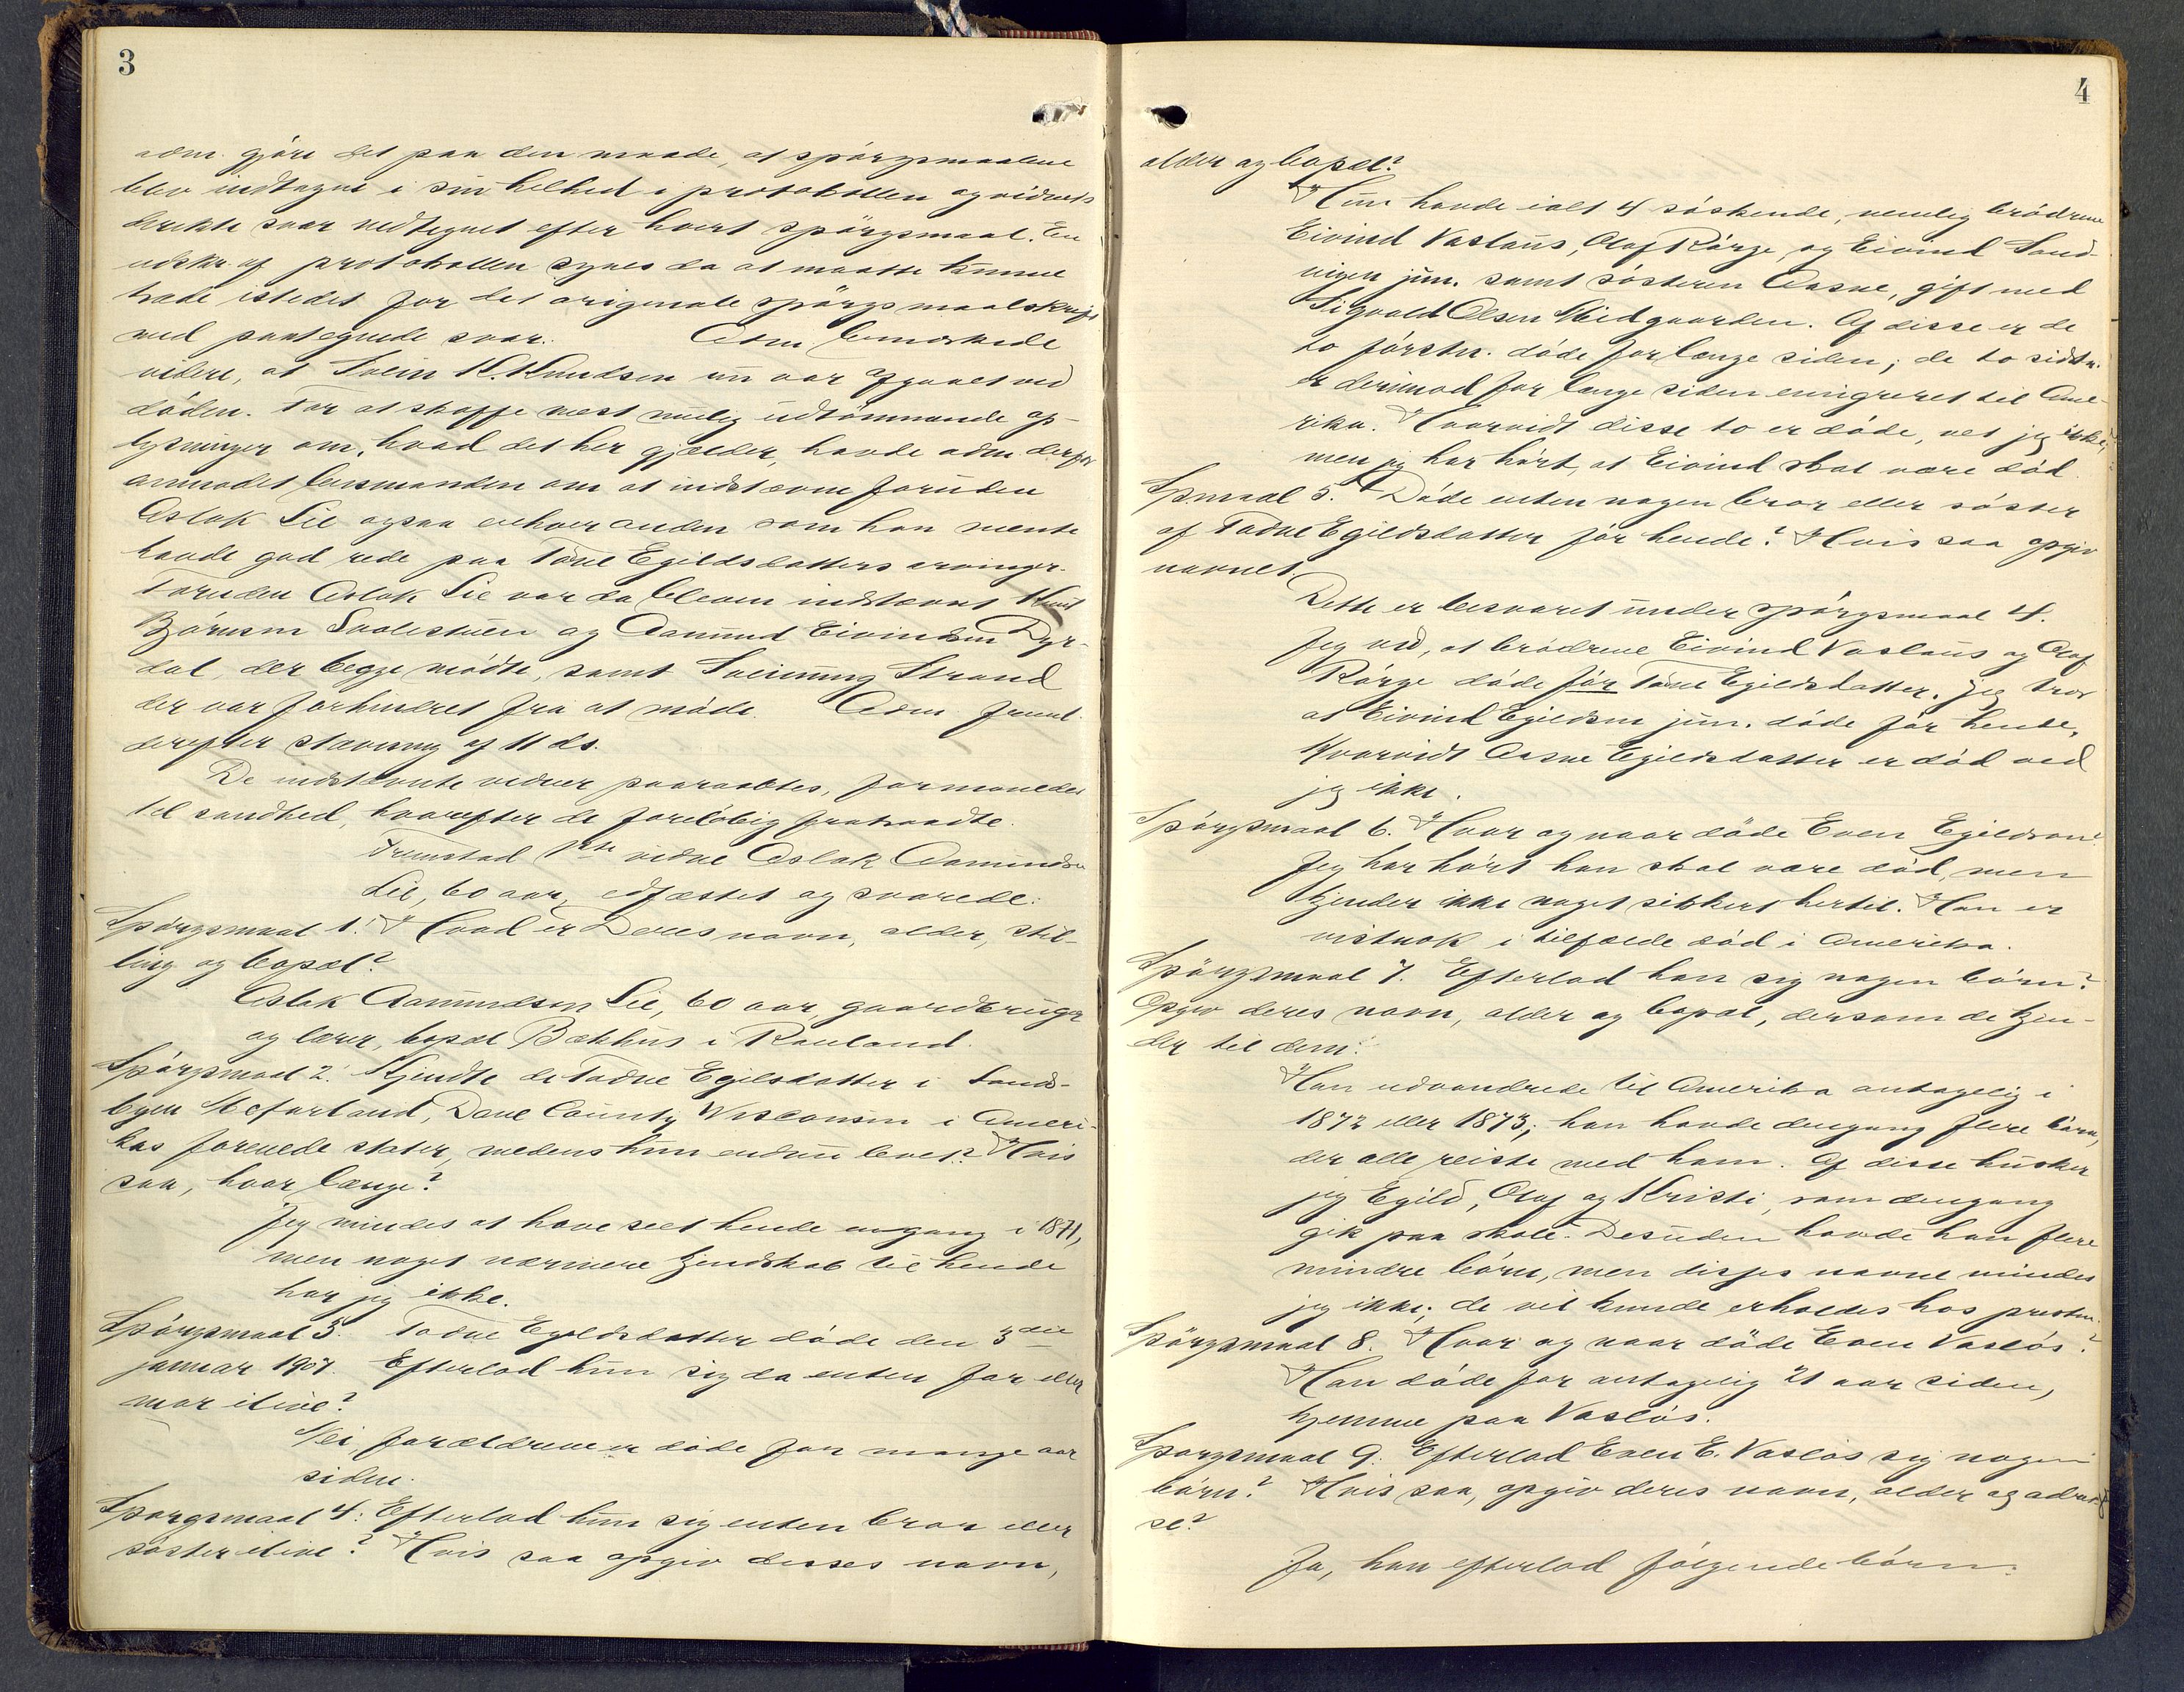 3
adm. gjøre det paa den maade, at spørgsmaalene
blev indtagne i sin helhed i protokollen og vidnets
direkte svar nedtegnet efter hvert spørgsmaal. En
udskr. af protokollen synes da at maatte kunne
træde istedet for det originale spørgsmaalskrift
med paategnede svar. Adm. bemerkede
videre, at Svein K. Knudsen nu var afgaaet ved
døden. For at skaffe mest mulig udtømmende op-
lysninger om, hvad det her gjelder, havde adm. derfor
anmodet lensmanden om at indstevne foruden
Aslak Lie ogsaa enhver anden som han mente
havde god rede paa Tone Egildsdatters arvinger.
Foruden Aslak Lie var da bleven indstevnt Knut
Bjørnsen Svalestuen og Aamund Eivindsen Dyr-
dal, der begge mødte, samt Sveinung Strand
der var forhindret fra at møde. Adm. freml.
derefter stævning af 11 ds.
De indstevnte vidner paaraabtes, formanedes
til sandhed, hvorefter de foreløbig fratraadte.
Fremstod 1ste vidne Aslak Aamundsen
Lie, 60 aar, edfæstet og svarede:
Spørgsmaal 1. Hvad er Deres navn, alder, stil-
ling og bopæl?
Aslak Aamundsen Lie, 60 aar, gaardbruger
og lærer, bopæl Bakhus i Rauland.
Spørgsmaal 2. Kjendte de Todne Egilsdatter i Lands-
byen Mcfarland, Dane County Wisconsin i Ameri-
kas forenede stater, medens hun endnu levet? Hvis
saa, hvor længe?
Jeg mindes at have seet hende engang i 1871,
men noget nærmere kjendskab til hende
har jeg ikke.
Spørgsmaal 3. Todne Egildsdatter døde den 3die
januar 1907. Efterlod hun sig da enten far eller
mor ilive?
Nei, forældrene er døde for mange aar
siden.
Spørgsmaal 4: Efterlod hun sig enten bror eller
søster ilive? Hvis saa opgiv disses navn,
4
alder og bopæl?
Hun havde ialt 4 søskende, nemlig brødrene
Eivind Vasläus, Olaf Rørge, og Eivind Sand-
vigen jun. samt søsteren Aasne, gift med
Sigvald Olsen Midgaarden. Af disse er de
to førstn. døde for længe siden; de to sidstn.
er derimod for længe siden emigreret til Ame-
rika. Hvorvidt disse to er døde, vet jeg ikke,
men jeg har hørt, at Eivind skal være død.
Spmaal 5. Døde enten nogen bror eller søster
af Todne Egildsdatter før hende? Hvis saa opgiv
navnet.
Dette er besvaret under spørgsmaal 4.
Jeg ved, at brødrene Eivind Vaslaus og Olaf
Rørge døde før Tone Egildsdatter. Jeg tror
at Eivind Egildsen jun. døde før hende.
Hvorvidt Aasne Egildsdatter er død ved
jeg ikke.
Spørgsmaal 6. Hvor og naar døde Even Egildson?
Jeg har hørt han skal være død, men
kjender ikke noget sikkert hertil. Han er
vistnok i tilfælde død i Amerika.
Spørgsmaal 7. Efterlod han sig nogen børn?
Opgiv deres navn, alder og bopæl, dersom de kjen-
der til dem.
Han udvandrede til Amerika antagelig i
1872 eller 1873; han havde dengang flere børn,
der alle reiste med ham. Af disse husker
jeg Egild, Olaf og Kristi, som dengang
gik paa skole. Desuden havde han flere
mindre børn, men disses navne mindes
jeg ikke; de vil kunde erholdes hos presten.
Spørgsmaal 8. Hvor og naar døde Even Vasløs?
Han døde for antagelig 21 aar siden,
hjemme paa Vasløs.
Spørgsmaal 9. Efterlod Even E. Vasløs sig nogen
børn? Hvis saa, opgiv deres navn, alder og adres-
se?
Ja, han efterlod følgende børn: